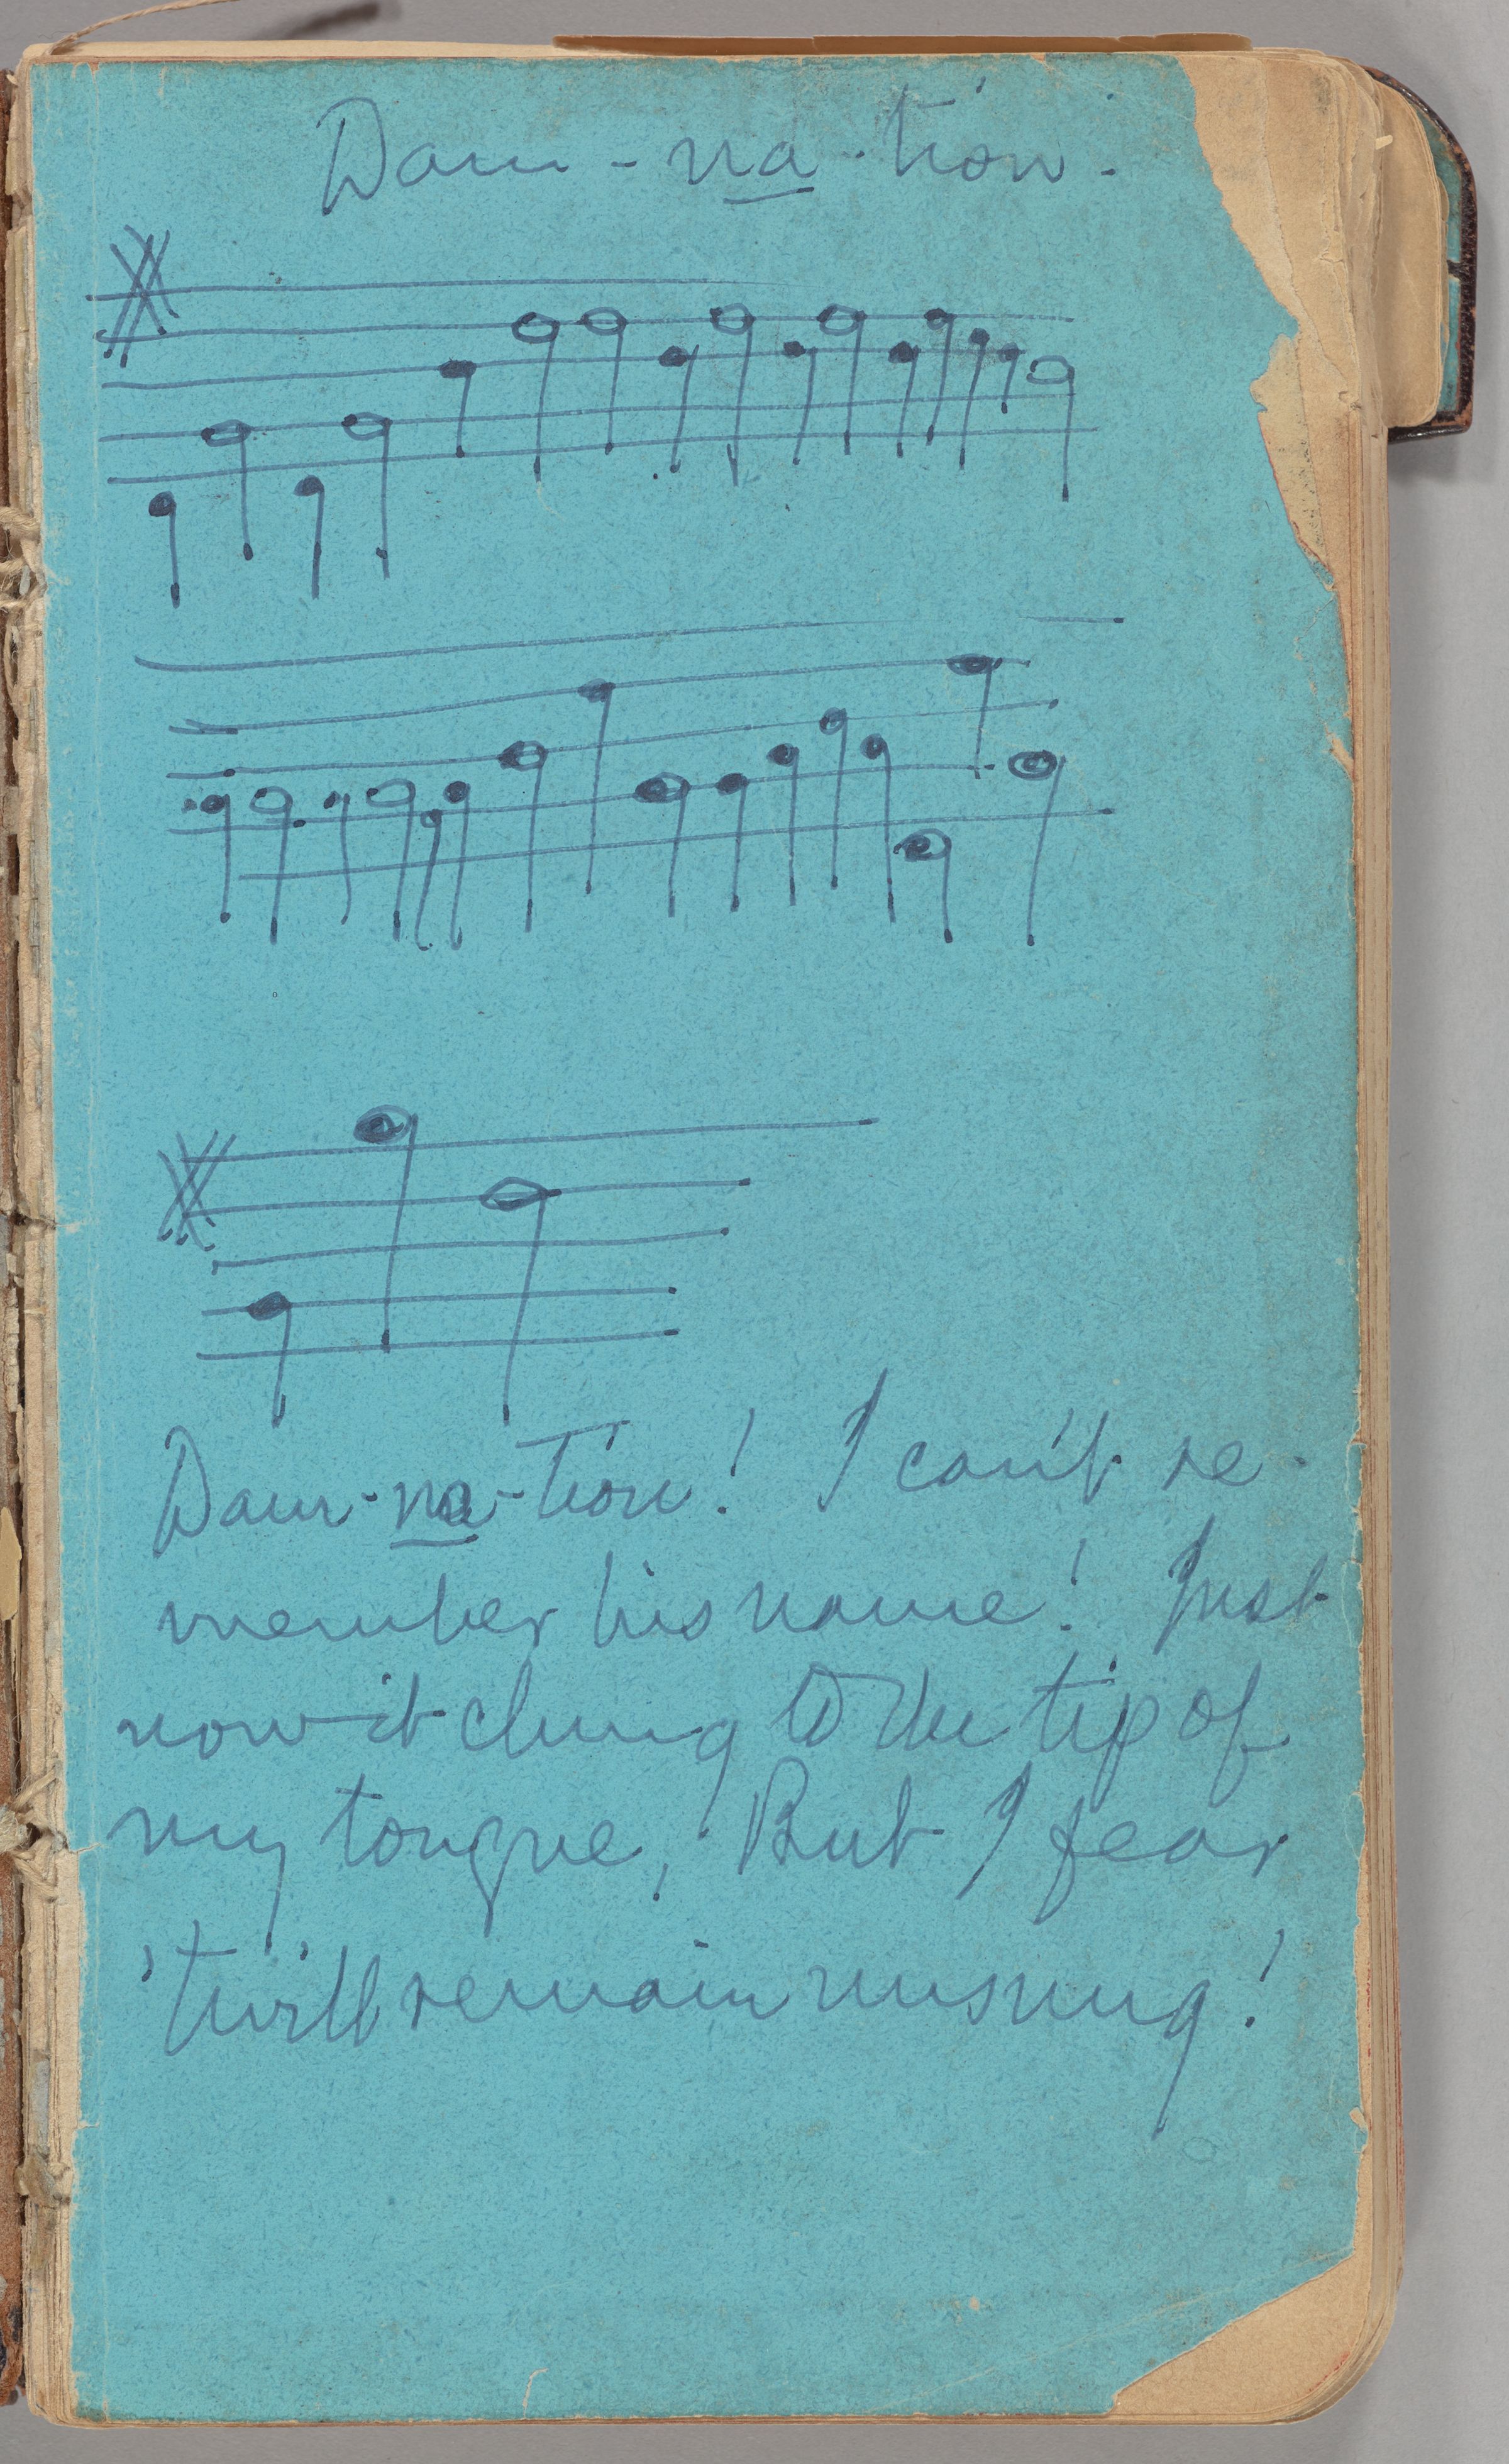 Dam - na - tion -
Dam - na - tion! I can't re -
member his name! Just
now it clung to the tip of
my tongue, But I fear
'twill remain missing!